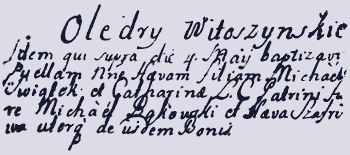 Oledry Witoszynskie
Idem qui supra die 4 Maij baptizavi
Puellam Nne Havam Filiam Michaelis
Swiątek et Catharina L: C: Patrini fu
re Michael Bąkowski et Hava Szafri
wa uterq de iisdem Bonis